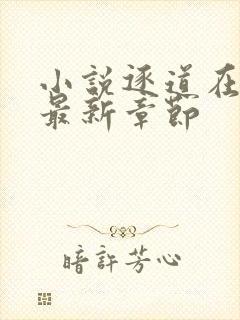 小説逐道在
最新章節
暗許芳心